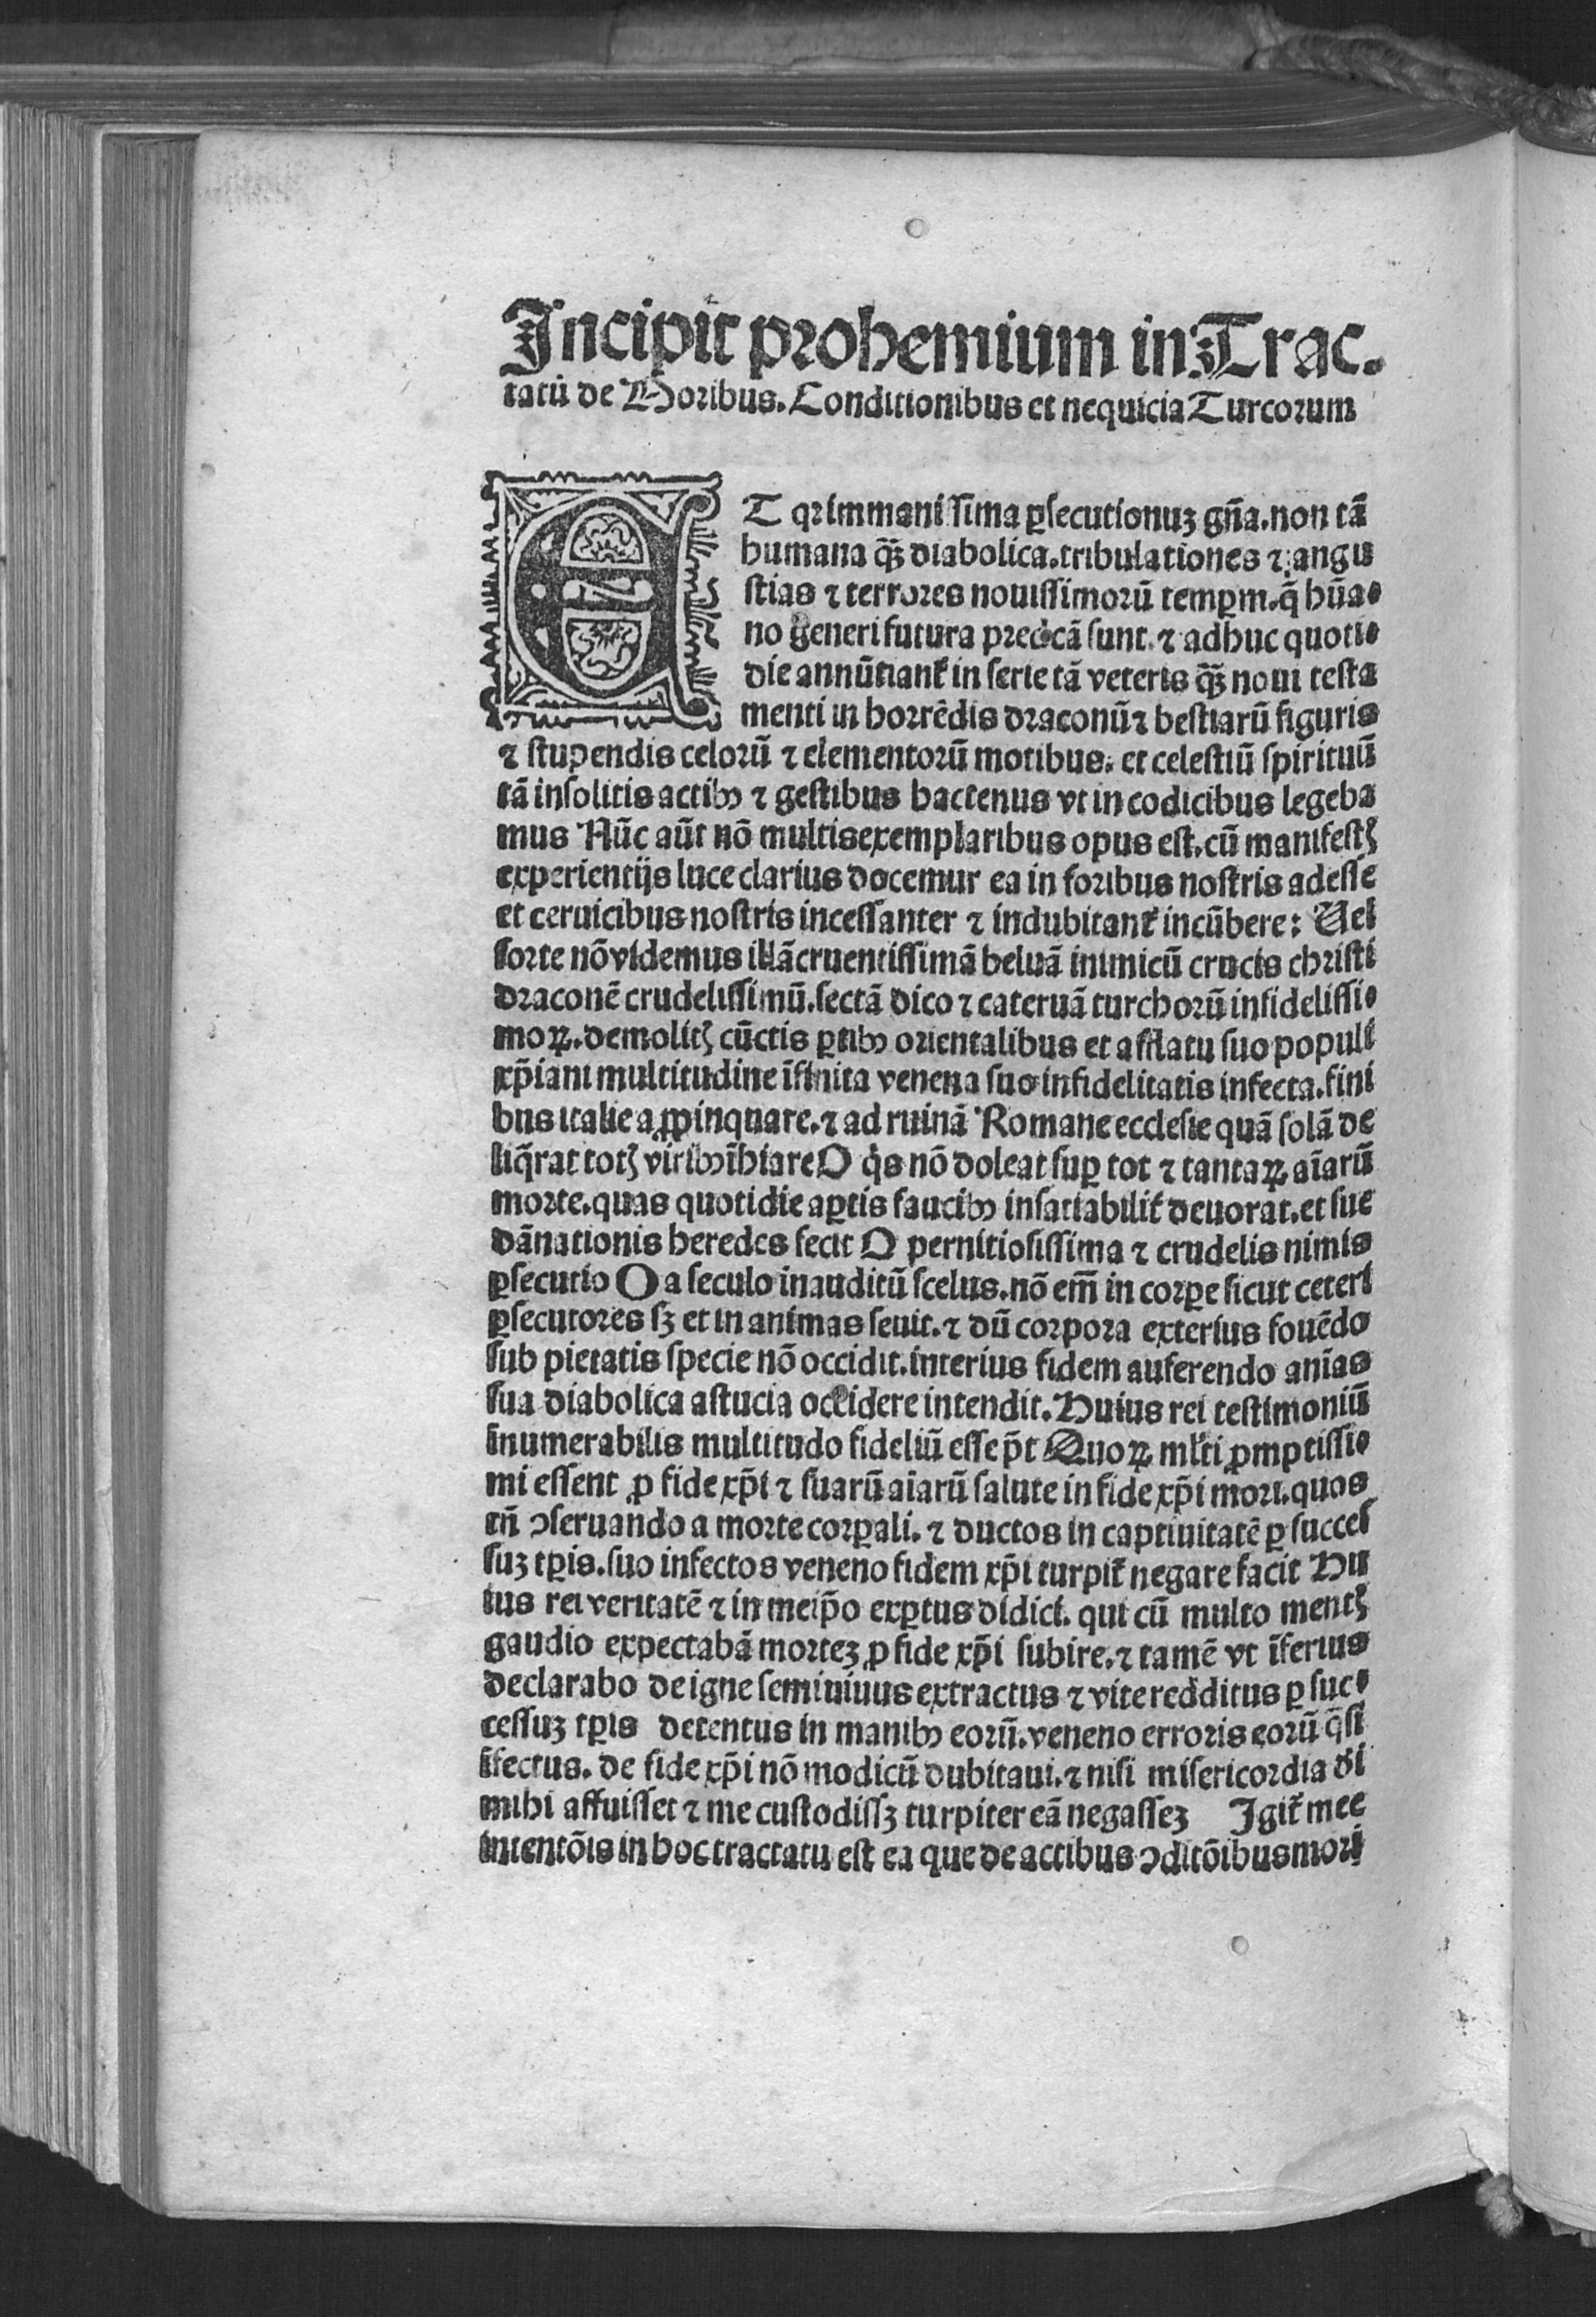 Incipit prohemium in Trac-
tatū de Moribus. Conditionibus et nequicia Turcorum
ET qrimmanissima ꝑsecutionuꝫ gn̄a. non tā
humana q̄ꝫ diabolica. tribulationes ⁊ angu
stias ⁊ terrores nouissimorū tempꝝm. q̄ hūa-
no generi futura predcā sunt. ⁊ adhuc quoti-
die annūtiant᷑ in serie tā veteris q̄ꝫ noui testa
menti in horrēdis draconū ⁊ bestiarū figuris
⁊ stupendis celorū ⁊ elementorū motibus. et celestiū spirituū
tā insolitis actibꝰ ⁊ gestibus hactenus vt in codicibus legeba
mus Nūc aūt nō multis exemplaribus opus est. cū manifestꝭ
experientijs luce clarius docemur ea in foribus nostris adesse
et ceruicibus nostris incessanter ⁊ indubitant᷑ incūbere: Uel
forte nō videmus illā cruentissimā beluā inimicū crucis christi
draconē crudelissimū. sectā dico ⁊ cateruā turchorū infidelissi-
moꝝ. demolitꝭ cūctis ꝑtibꝰ orientalibus et afflatu suo populi
xp̄iani multitudine īfinita venena suo infidelitatis infecta. fini
bus italie aꝓpinquare. ⁊ ad ruinā Romane ecclesie quā solā de
liq̄rat totꝭ viribꝰ īhiare O qͥs nō doleat suꝑ tot ⁊ tantaꝝ aīarū
morte. quas quotidie aꝑtis faucibꝰ insatiabilit᷑ deuorat. et sue
dānationis heredes fecit O pernitiosissima ⁊ crudelis nimis
ꝑsecutio O a seculo inauditū scelus. nō em̄ in corꝑe sicut ceteri
ꝑsecutores sꝫ et in animas seuit. ⁊ dū corpora exterius fouēdo
sub pietatis specie nō occidit. interius fidem auferendo anīas
sua diabolica astucia occidere intendit. Huius rei testimoniū
īnumerabilis multitudo fideliū esse p̄t Quoꝝ ml᷑ti ꝓmptissi-
mi essent ꝓ fide xp̄i ⁊ suarū aīarū salute in fide xp̄i mori. quos
tn̄ ꝯseruando a morte corꝑali. ⁊ ductos in captiuitatē ꝑ succes
suꝫ tꝑis. suo infectos veneno fidem xp̄i turpit᷑ negare facit Hu
ius rei veritatē ⁊ in meip̄o exꝑtus didici. qui cū multo mentꝭ
gaudio expectabā morteꝫ ꝓ fide xp̄i subire. ⁊ tamē vt īferius
declarabo de igne seminiuus extractus ⁊ vite redditus ꝑ suc-
cessuꝫ tꝑis detentus in manibꝰ eorū. veneno erroris eorū q̄si
īfectus. de fide xp̄i nō modicū dubitaui. ⁊ nisi misericordia dī
mihi affuisset ⁊ me custodissꝫ turpiter eā negasseꝫ Igit᷑ mee
intentōis in hoc tractatu est ea que de actibus ꝯditōibus mori